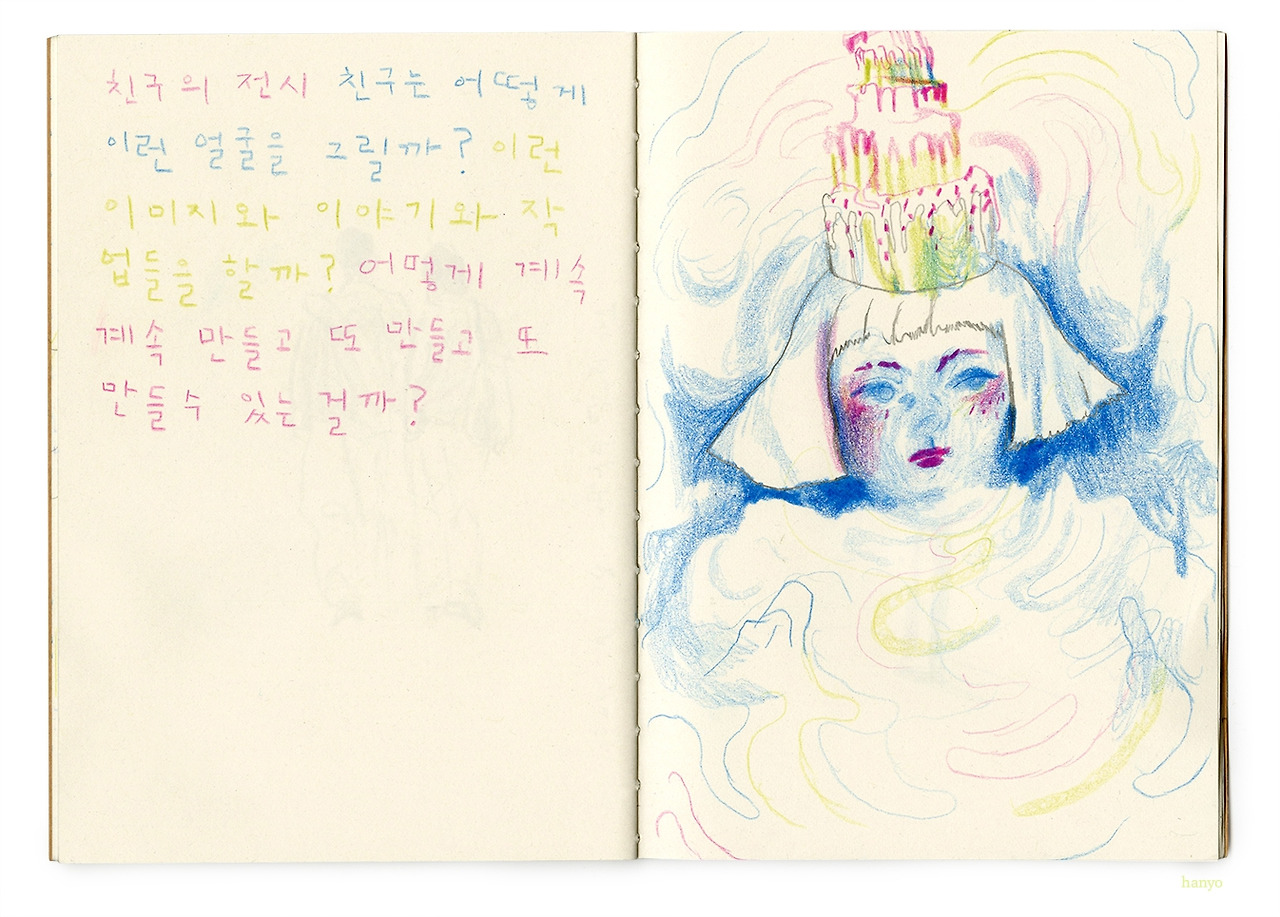 친구의 전시 친구는 어떻게
이런 얼굴을 그릴까? 이런
이미지와 이야기와 작
업들을 할까? 어떻게 계속
계속 만들고 또 만들고 또
만들수 있는 걸까?
hanyo